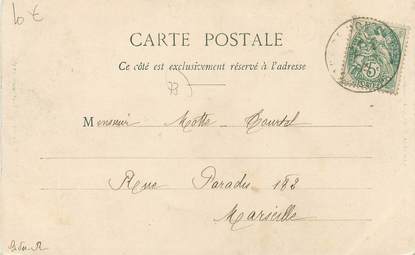 10 €
CARTE POSTALE
Ce côté est exclusivement réservé à l'adresse
Monsieur Motte
Rue Paradis 182
Marseille